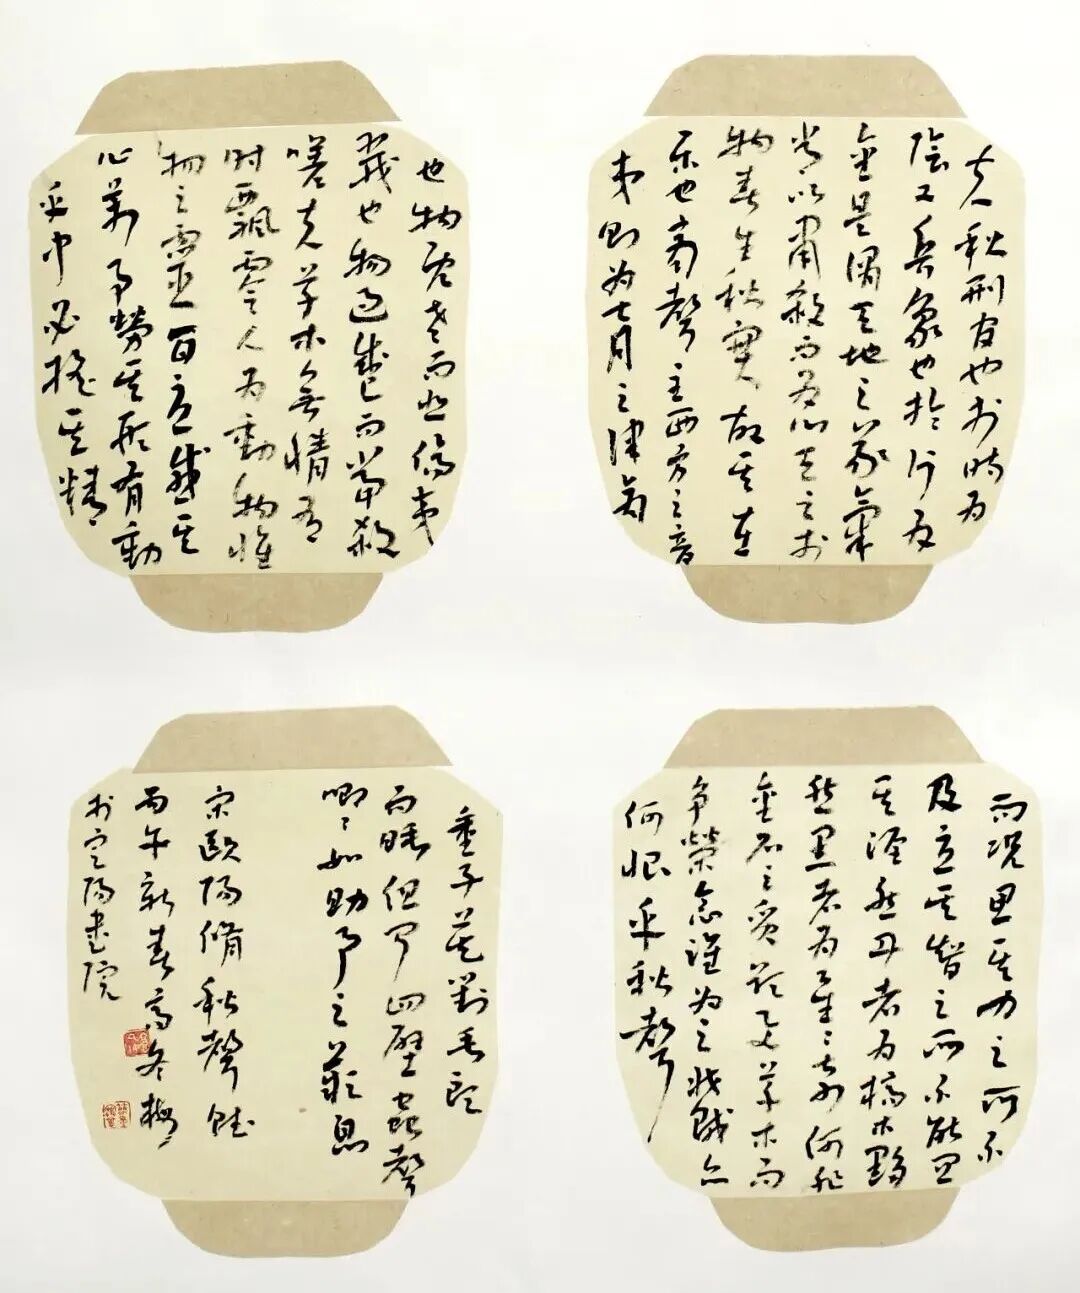 夫秋刑官也於時為
陰又兵象也於行為
金是謂天地之義氣
常以肅殺而為心天之於
物春生秋實故其在
樂也商聲主西方之音
夷則為七月之律商
也物既老而悲傷夷
戮也物過盛而當殺
嗟夫草木無情有
時飄零人為動物惟
物之靈百憂感其
心萬事勞其形有動
乎中必搖其精
而況思其力之所不
及憂其智之所不能宜
其渥然丹者為槁木黟
然黑者為星星奈何非
金石之質欲與草木而
爭榮念誰為之戕賊亦
何恨乎秋聲
童子莫對垂頭
而睡但聞四壁蟲聲
唧唧如助予之歎息
宋歐陽脩秋聲賦
丙午新春高冬梅
於陽書院